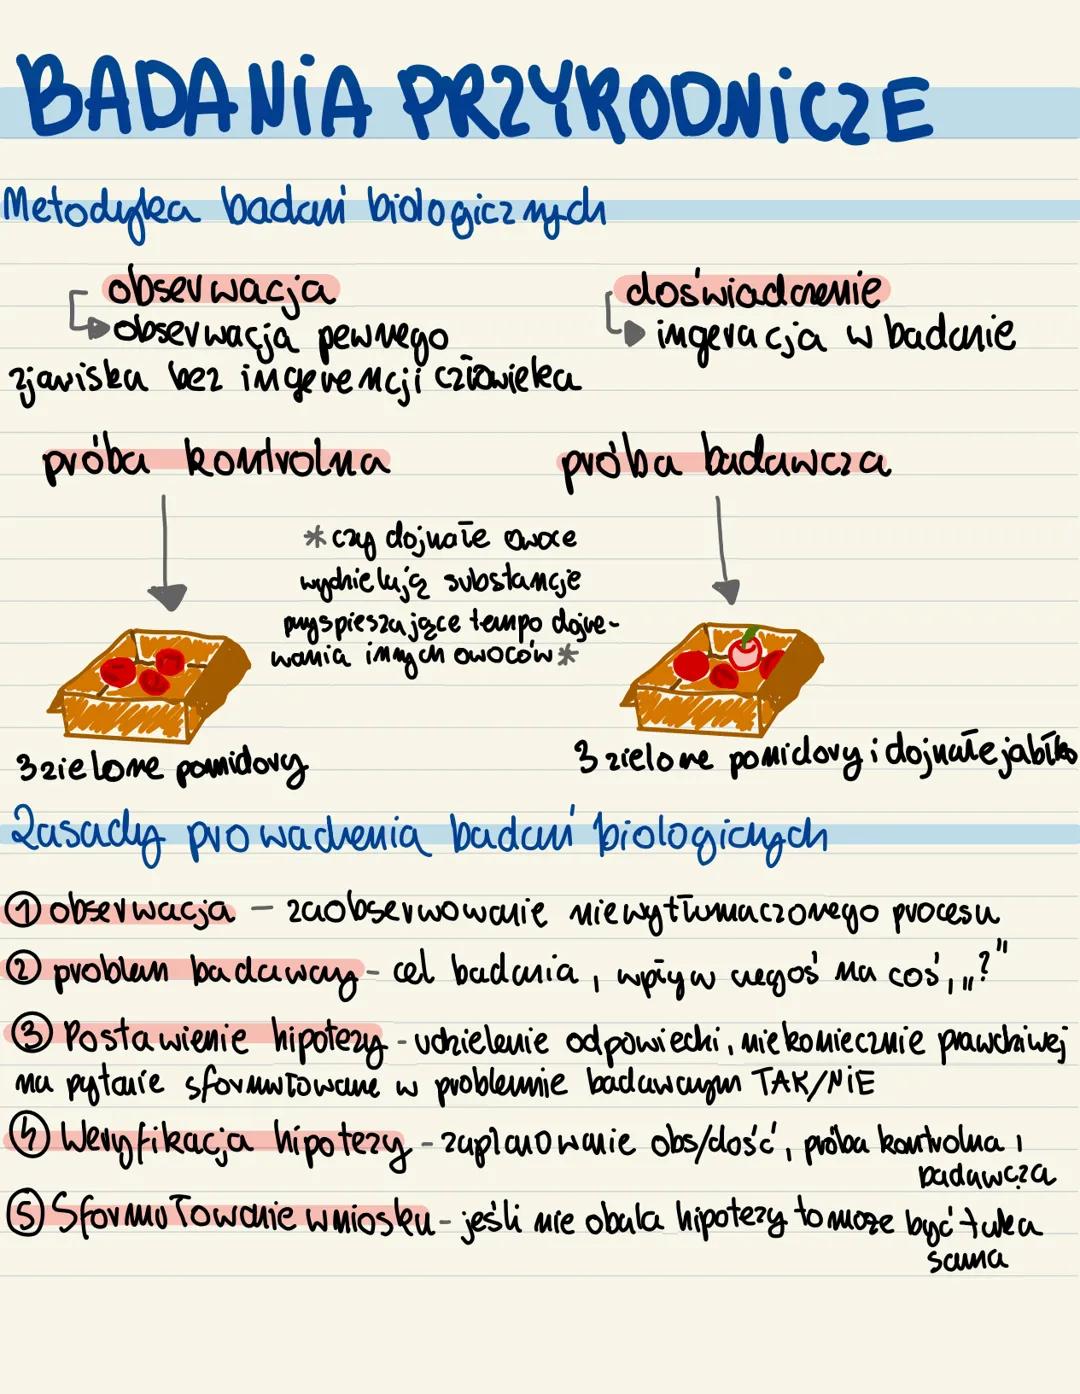 BADANiA PRZYRODNiCZE
Metodyka badań biologicznych
obserwacja
doświadczenie
obserwacja pewnego
zjawiska bez ingerencji człowieka
ingeracja w badanie
próba kontrolna
próba badawcza
*czy dojrzałe owoce
wydzielają substancje
przyspieszające tempo dojrze-
wania innych owoców*
3 zielone pomidory
3 zielone pomidory i dojrzałe jabłko
Zasady prowadzenia badań biologicznych
① obserwacja – zaobserwowanie niewytłumaczonego procesu
② problem badawczy - cel badania, wpływ czegoś na coś, „?"
③ Postawienie hipotezy - udzielenie odpowiedzi, niekoniecznie prawdziwej
na pytanie sformułowane w problemie badawczym TAK/NiE
④ Weryfikacja hipotezy - zaplanowanie obs/dość, próba kontrolna i
badawcza
⑤ Sformułowanie wniosku - jeśli nie obala hipotezy to może być taka
sama